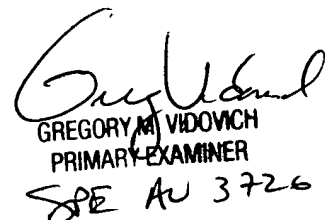 Greg Vidovich
GREGORY M. VIDOVICH
PRIMARY EXAMINER
SPE AU 3726